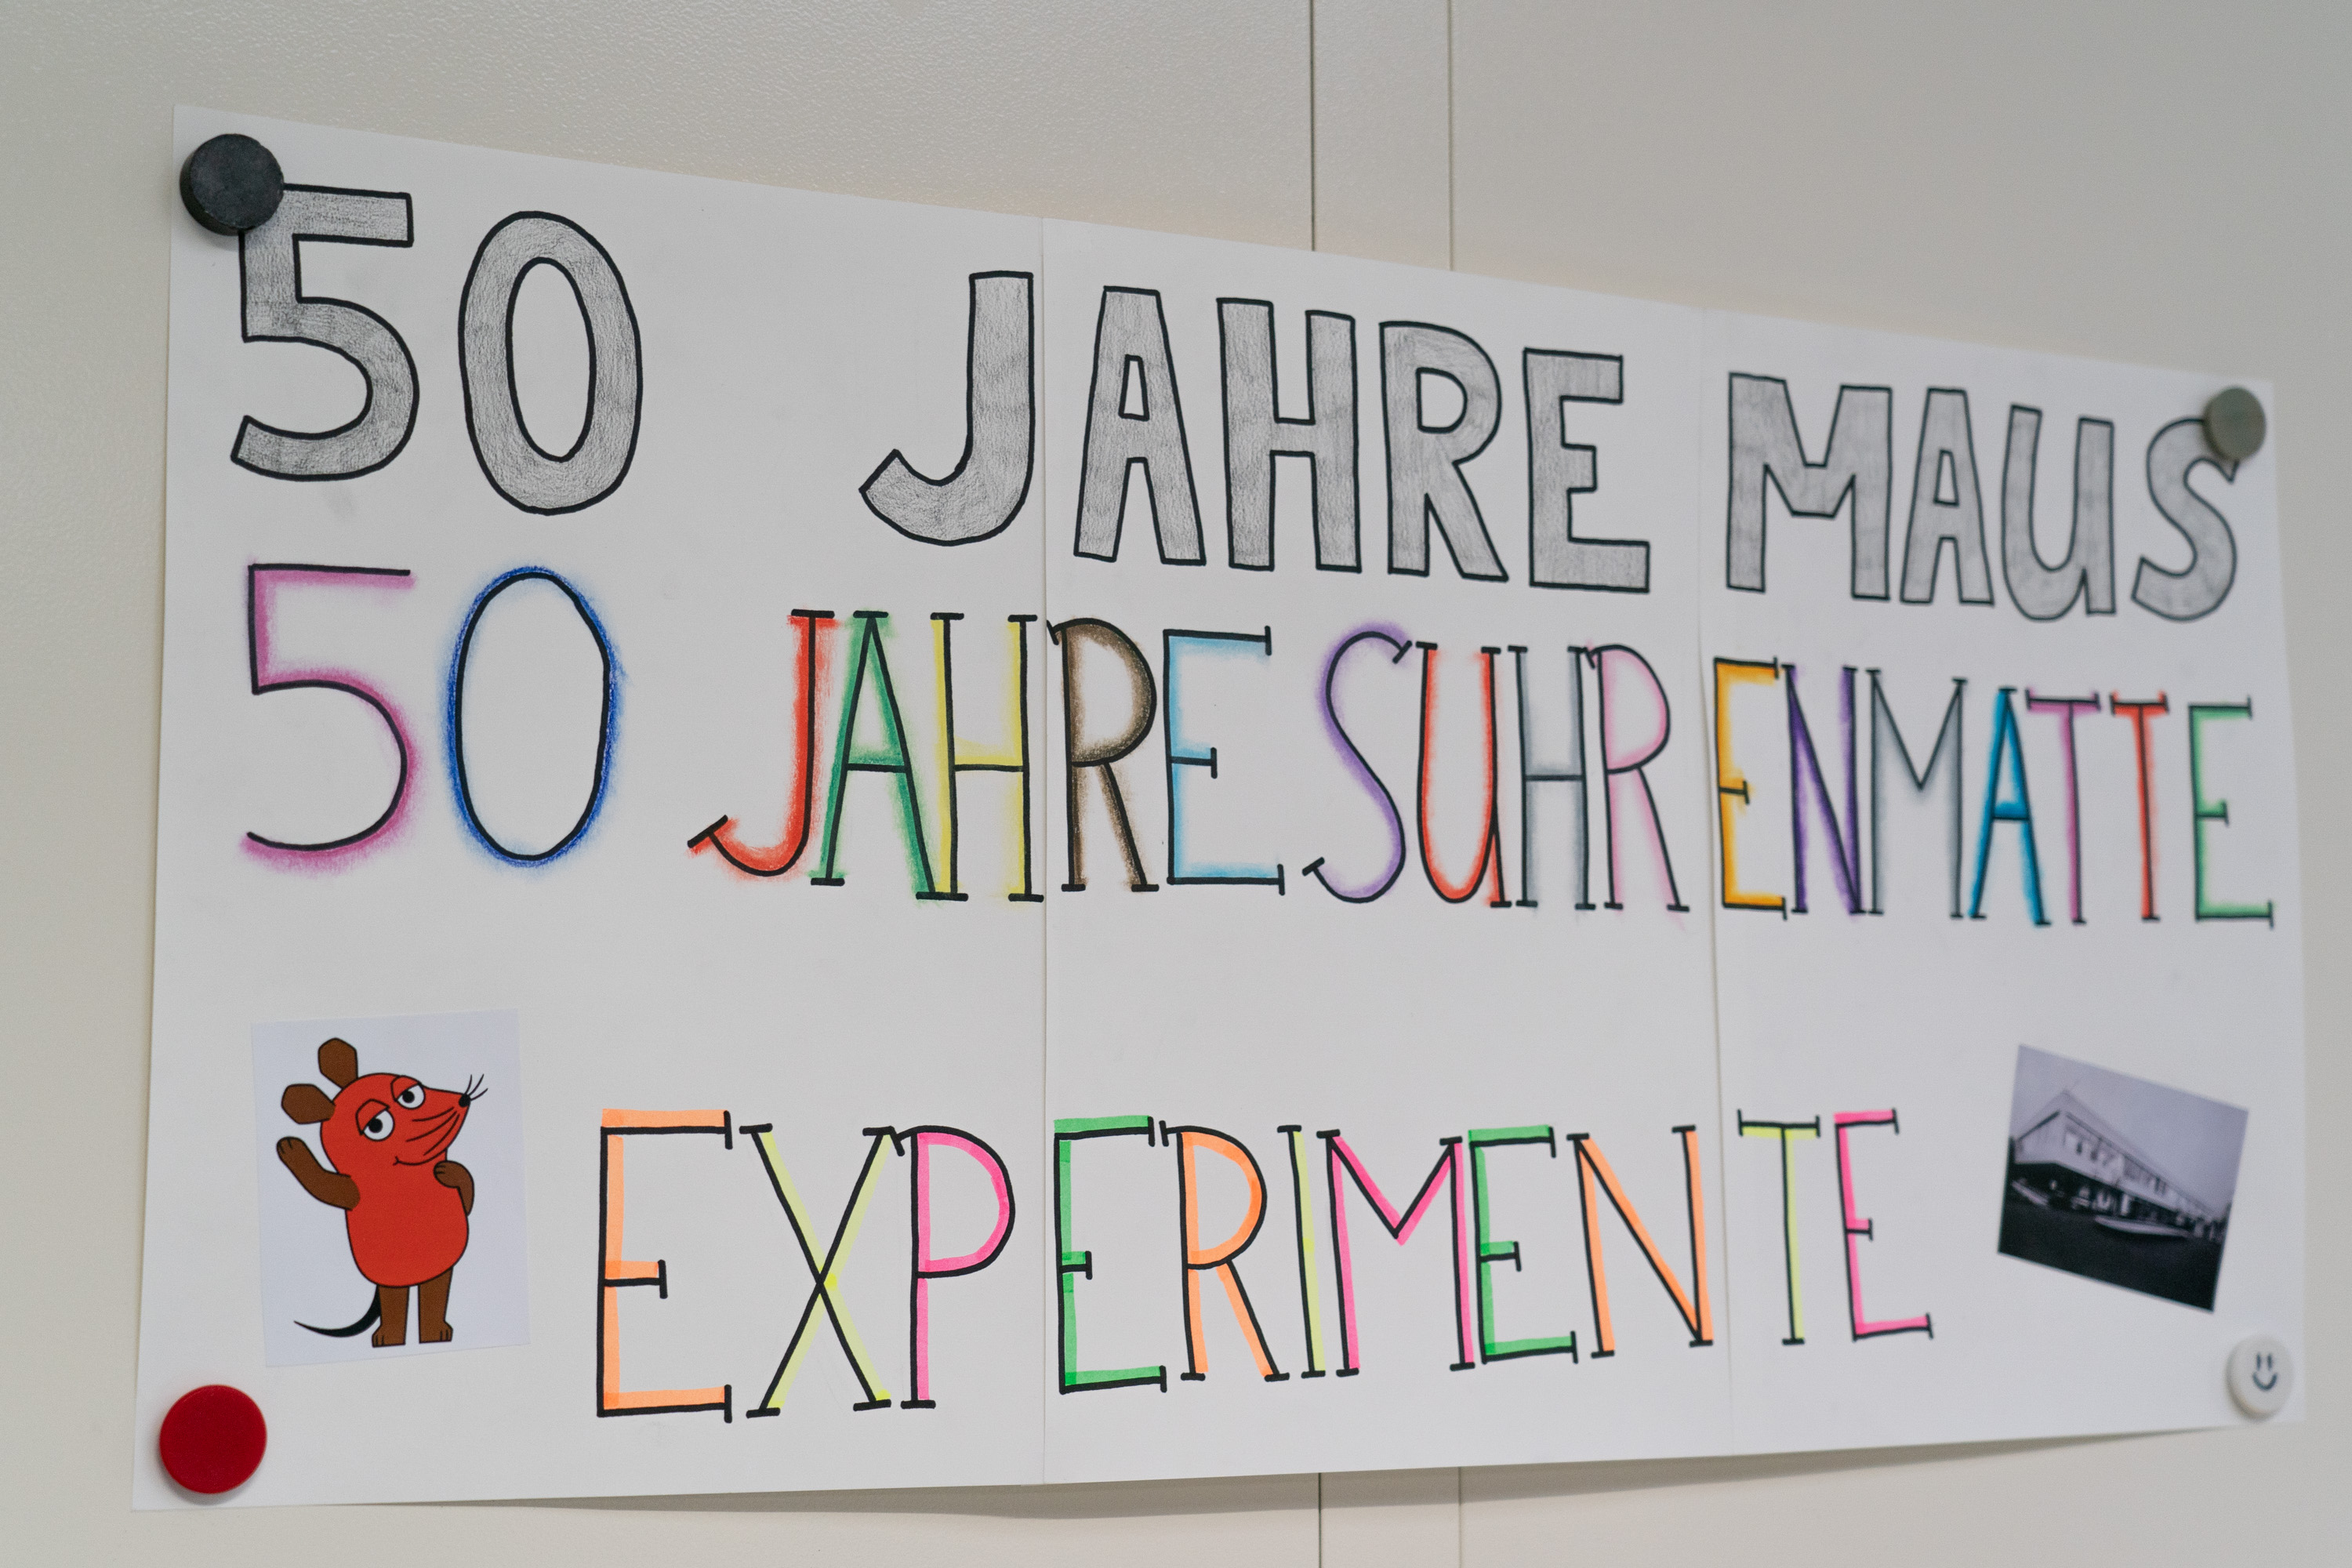 50 JAHRE MAUS
50 JAHRE SUHRENMATTE
EXPERIMENTE